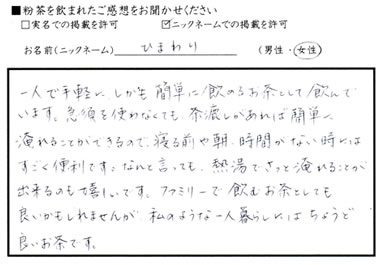 ■粉茶を飲まれたご感想をお聞かせください
□実名での掲載を許可 ☑ニックネームでの掲載を許可
お名前(ニックネーム) ひまわり (男性・女性)
一人で手軽に、しかも簡単に飲めるお茶として飲んで
います。急須を使わなくても、茶漉しがあれば簡単に
淹れることができるので、寝る前や朝、時間がない時には
すごく便利です。なんと言っても、熱湯でさっと淹れることが
出来るのも嬉しいです。ファミリーで飲むお茶としても
良いかもしれませんが、私のような一人暮らしにはちょうど
良いお茶です。